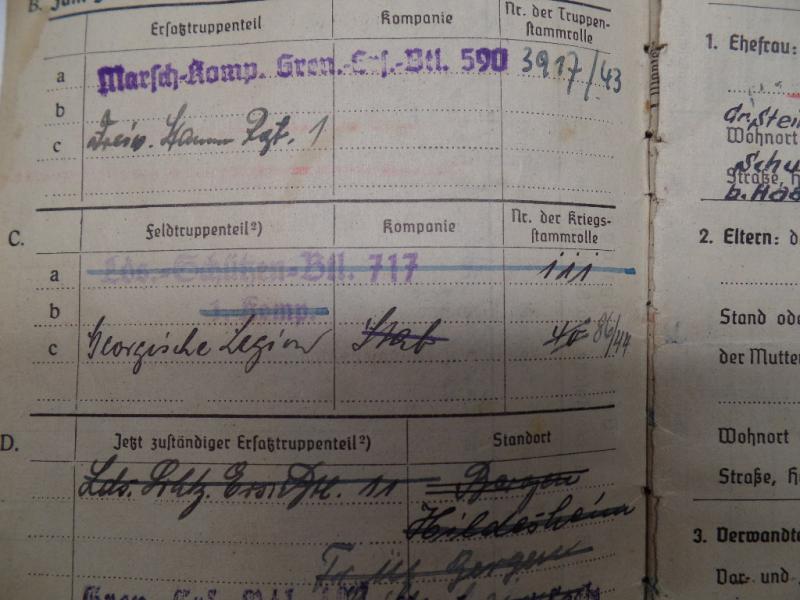 B.
Ersatztruppenteil Kompanie Nr. der Truppen-stammrolle
a Marsch-Komp. Gren.-Ers.-Btl. 590 3917/43
b
c Freiw. Stamm Rgt. 1
C. Feldtruppenteil²) Kompanie Nr. der Kriegs-stammrolle
a Lds.-Schützen-Btl. 717 iii
b 1. Komp.
c Georgische Legion Stab 40 86/44
D. Jetzt zuständiger Ersatztruppenteil²) Standort
Lds. Schtz. Ers. Btl. 11 Bergen
Hildesheim
Tr. Üb. Bergen
Gren.
1. Ehefrau:
Wohnort
Straße, H
b. Ha
2. Eltern: d
Stand ode
der Mutte
Wohnort
Straße, H
3. Verwandte
Vor- und